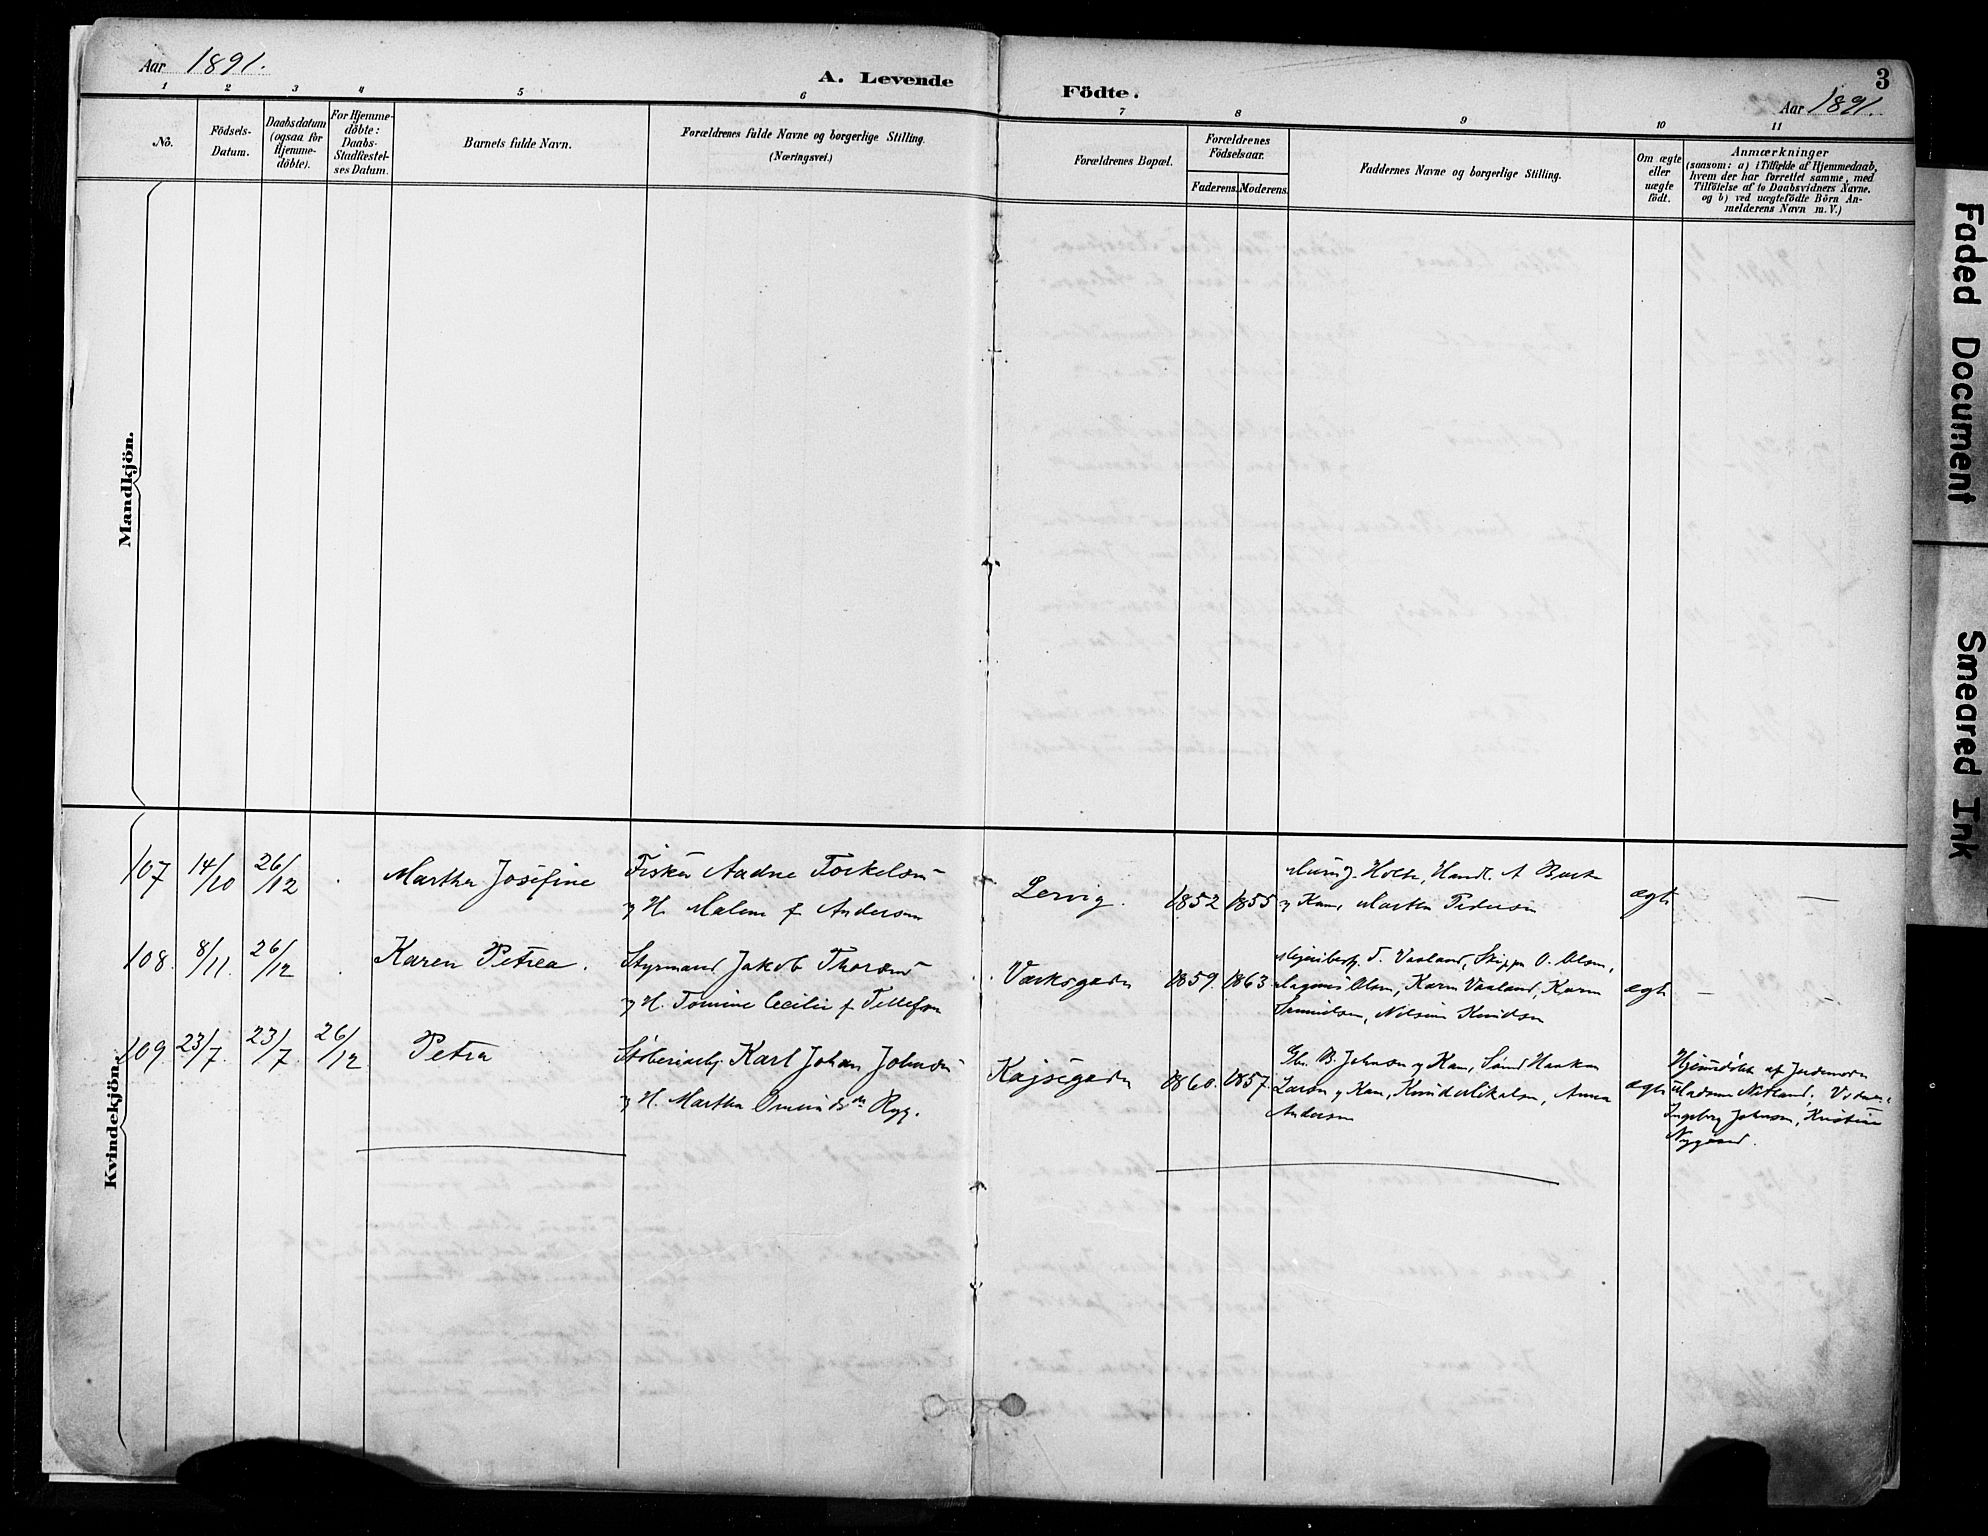 Aar 1891.
A. Levende Födte.
3
Aar 1891.
1 2 3 4 5 6 7 8 9 10 11
No.
Födsels-
Datum.
Daabsdatum
(ogsaa for
Hjemme-
döbte).
For Hjemme-
döbte:
Daabs-
Stadfæstel-
ses Datum.
Barnets fulde Navn.
Forældrenes fulde Navne og borgerlige Stilling.
(Næringsvei.)
Forældrenes Bopæl.
Forældrenes
Födselsaar.
Faderens. Moderens.
Faddernes Navne og borgerlige Stilling.
Om ægte
eller
uægte
födt.
Anmærkninger
(saasom: a) i Tilfælde af Hjemmedaab,
hvem der har forrettet samme, med
Tilföielse af to Daabsvidners Navne.
og b) ved uægtefödte Börn An-
melderens Navn m. V.)
Mandkjön.
Kvindekjön.
107 14/10 26/12 Martha Josefine Fisker Aadne Torkelsen
H. Malene f Andersen
Lervig. 1852 1855
Holte, Handl. A
Martha Pedersen
ægte —
108. 8/11. 26/12 Karen Petrea. Styrmand Jakob Thorsen
H. Tomine Cecilie f Tellefsen
Værksgaden 1859. 1863
T. Vaaland, Skipper O. Olsen,
Olsen, Karen Vaaland, Karen
Knudsen
ægte —
109. 23/7. 23/7. 26/12 Petra Støberiarb. Karl Johan Johnsen
H. Martha Omundsdr Ryg.
Kajsegaden 1860. 1857.
B. Johnsen Haaken
Larsen Anna
Andersen
ægte
Hjemmedöbt af Jordemoder
Madame
Ingeborg Johnsen, Kristine
Nygaard.
Faded Document
Smeared Ink